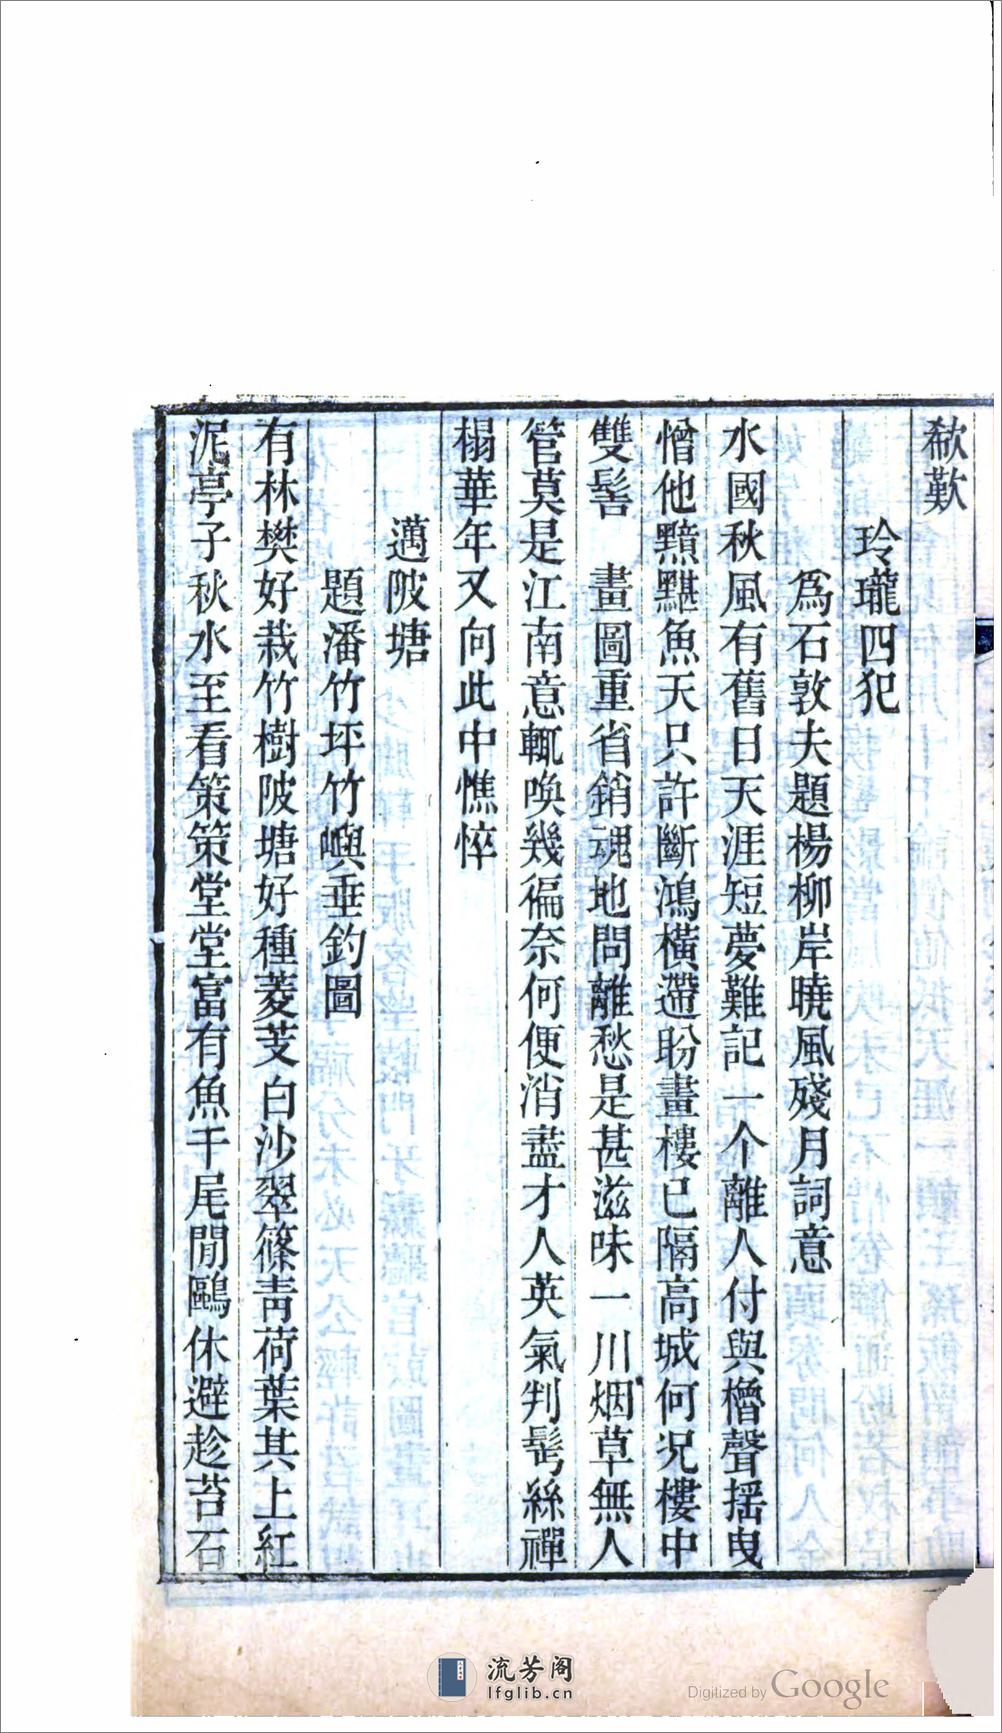 欷歎
玲瓏四犯
爲石敦夫題楊柳岸曉風殘月詞意
水國秋風有舊日天涯短夢難記一个離人付與櫓聲揺曳
憎他黯黮魚天只許斷鴻橫遰盼畫樓已隔高城何况樓中
雙髻　畫圖重省銷魂地問離愁是甚滋味一川烟草無人
管莫是江南意輒喚幾徧奈何便消盡才人英氣判鬢絲禪
榻華年又向此中憔悴
邁陂塘
題潘竹坪竹嶼垂釣圖
有林樊好栽竹樹陂塘好種菱芰白沙翠篠靑荷葉其上紅
泥亭子秋水至看策策堂堂富有魚千尾閒鷗休避趁苔石
流芳阁
lfglib.cn
Digitized by Google